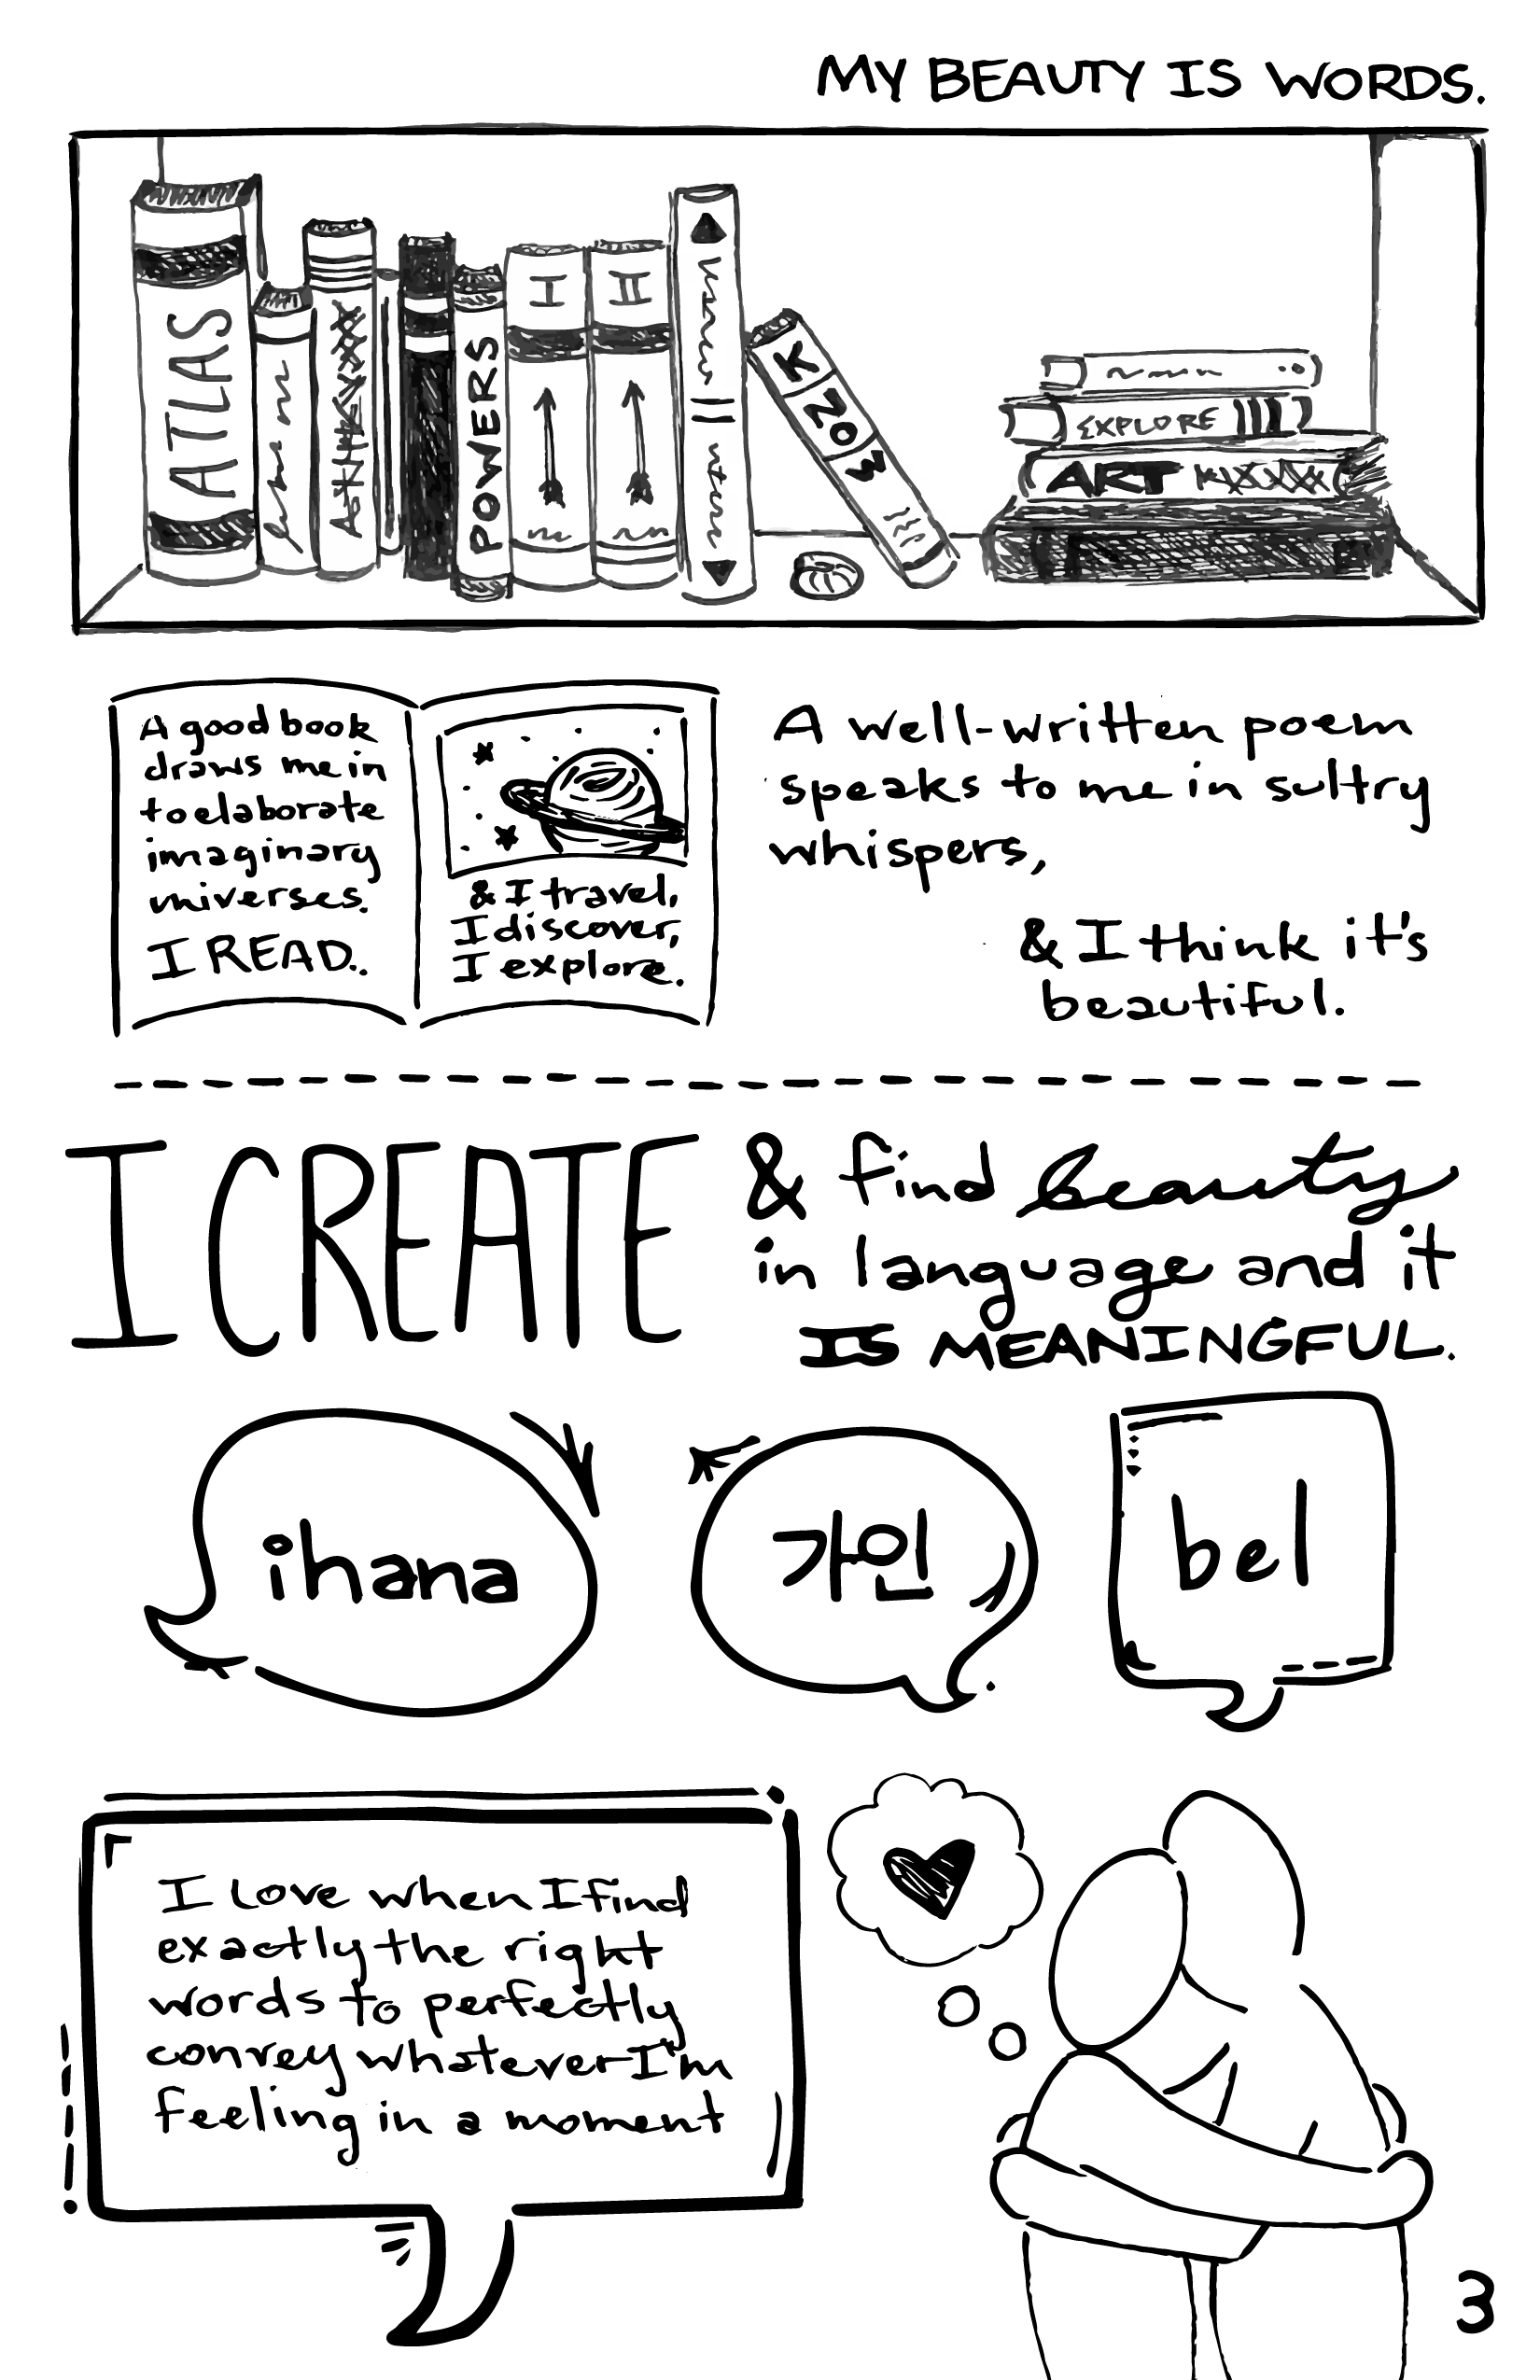 MY BEAUTY IS WORDS.
ATLAS
POWERS
I
II
K
NO
W
EXPLORE
ART
A good book
draws me in
to elaborate
imaginary
universes.
I READ.
& I travel,
I discover,
I explore.
A well-written poem
speaks to me in sultry
whispers,
& I think it's
beautiful.
I CREATE
& find beauty
in language and it
IS MEANINGFUL.
ihana
가인
bel
I Love when I find
exactly the right
words to perfectly
convey whatever I'm
feeling in a moment
3